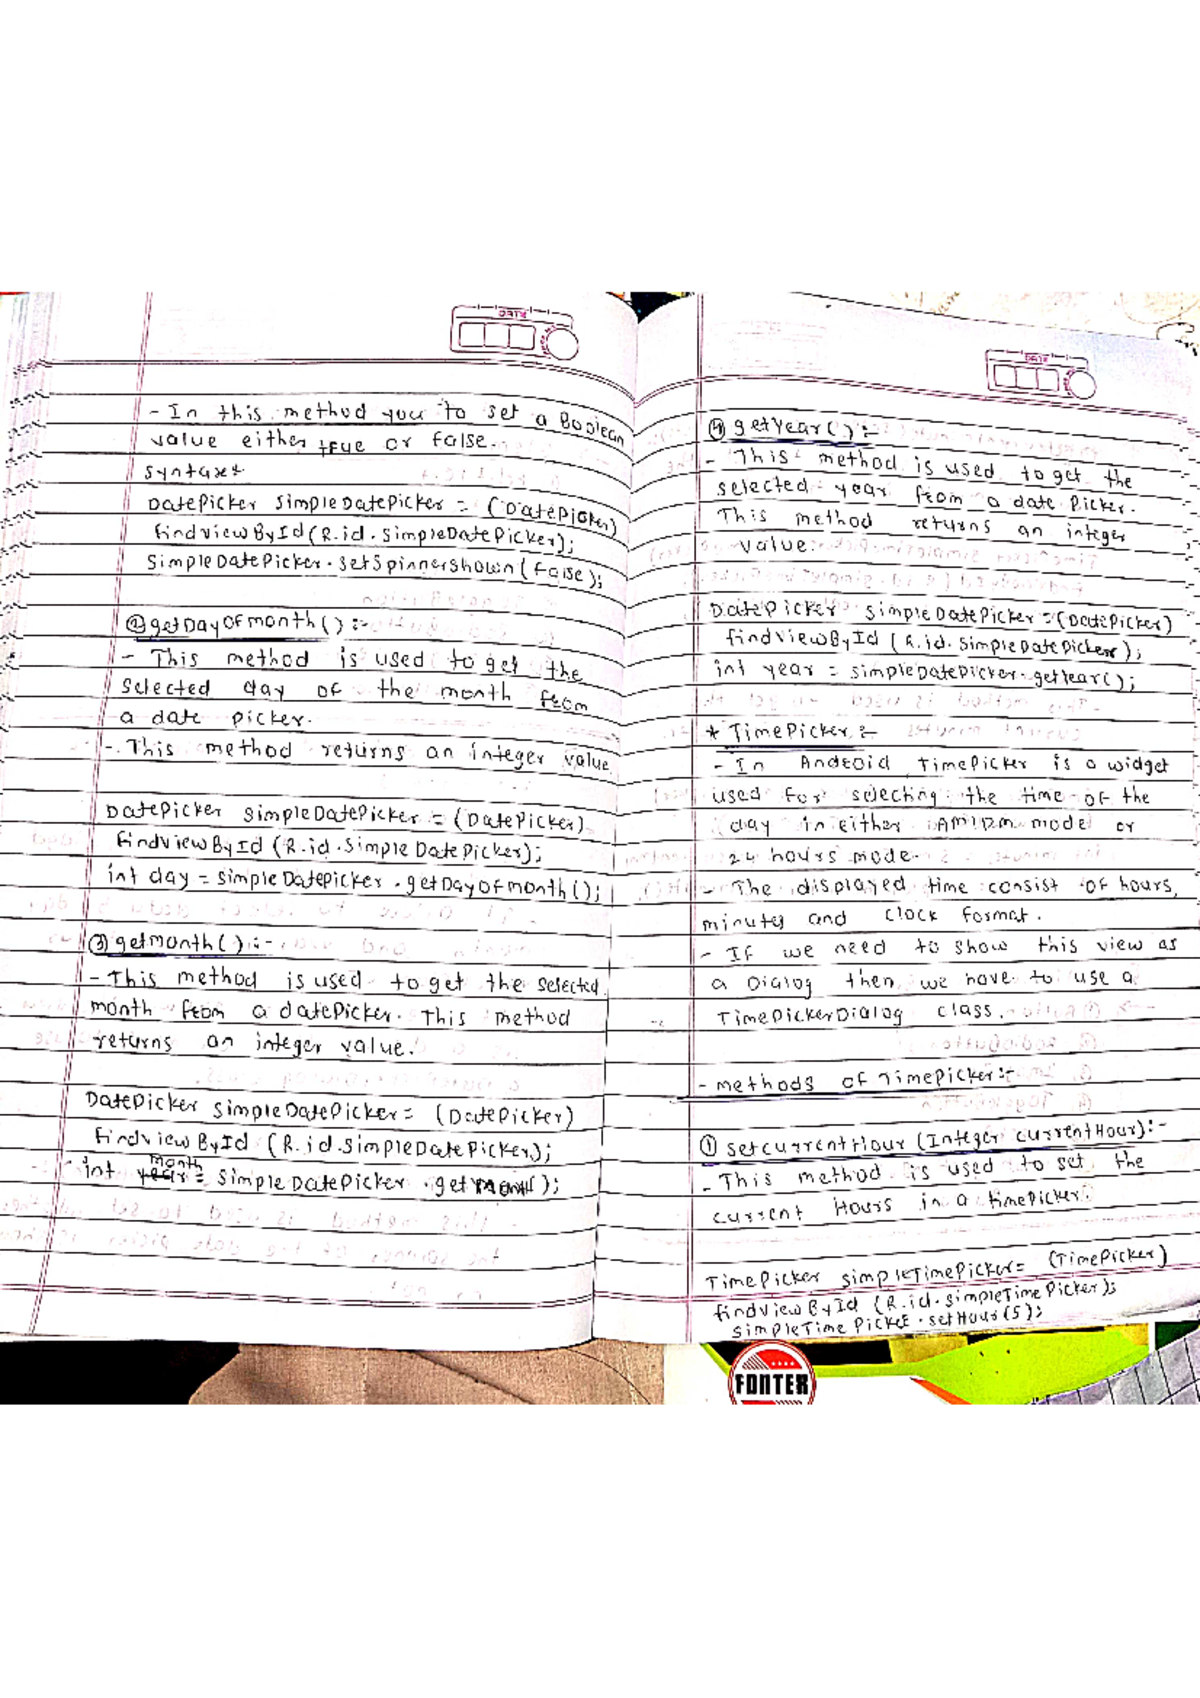 DATE
- In this method you to set a Boolean
value either true or false.
Syntax
DatePicker simpleDatePicker = (DatePicker)
findviewById(R.id.simpleDatePicker);
SimpleDatePicker.setSpinnershown(false);
② getDayOfmonth() :-
- This method is used to get the
selected day of the month from
a date picker.
- This method returns an integer value
DatePicker simpleDatePicker = (DatePicker)
findviewById (R.id.simpleDatePicker);
int day = simpleDatepicker.getDayOfmonth();
③ getmonth() :-
- This method is used to get the selected
month from a datePicker. This method
returns an integer value.
DatePicker simpleDatePicker = (DatePicker)
findviewById (R.id.simpleDatePicker);
month
int year = simpleDatePicker.getMonth();
DATE
④ getYear() :-
- This method is used to get the
selected year from a date Picker.
This method returns an integer
value.
DatePicker simpleDatePicker = (DatePicker)
findviewById (R.id.simpleDatePicker);
int year = simpleDatePicker.getYear();
* TimePicker :-
- In Android, TimePicker is a widget
used for selecting the time of the
day in either AM/PM mode or
24 hours mode.
- The displayed time consist of hours,
minutes and clock format.
- If we need to show this view as
a Dialog then we have to use a
TimePickerDialog class.
- methods of TimePicker :-
① setcurrentHour (Integer currentHour) :-
- This method is used to set the
current Hours in a timePicker.
TimePicker simpleTimePicker= (TimePicker)
findviewById (R.id.simpleTimePicker);
simpleTimePicker.setHour(5);
FONTER